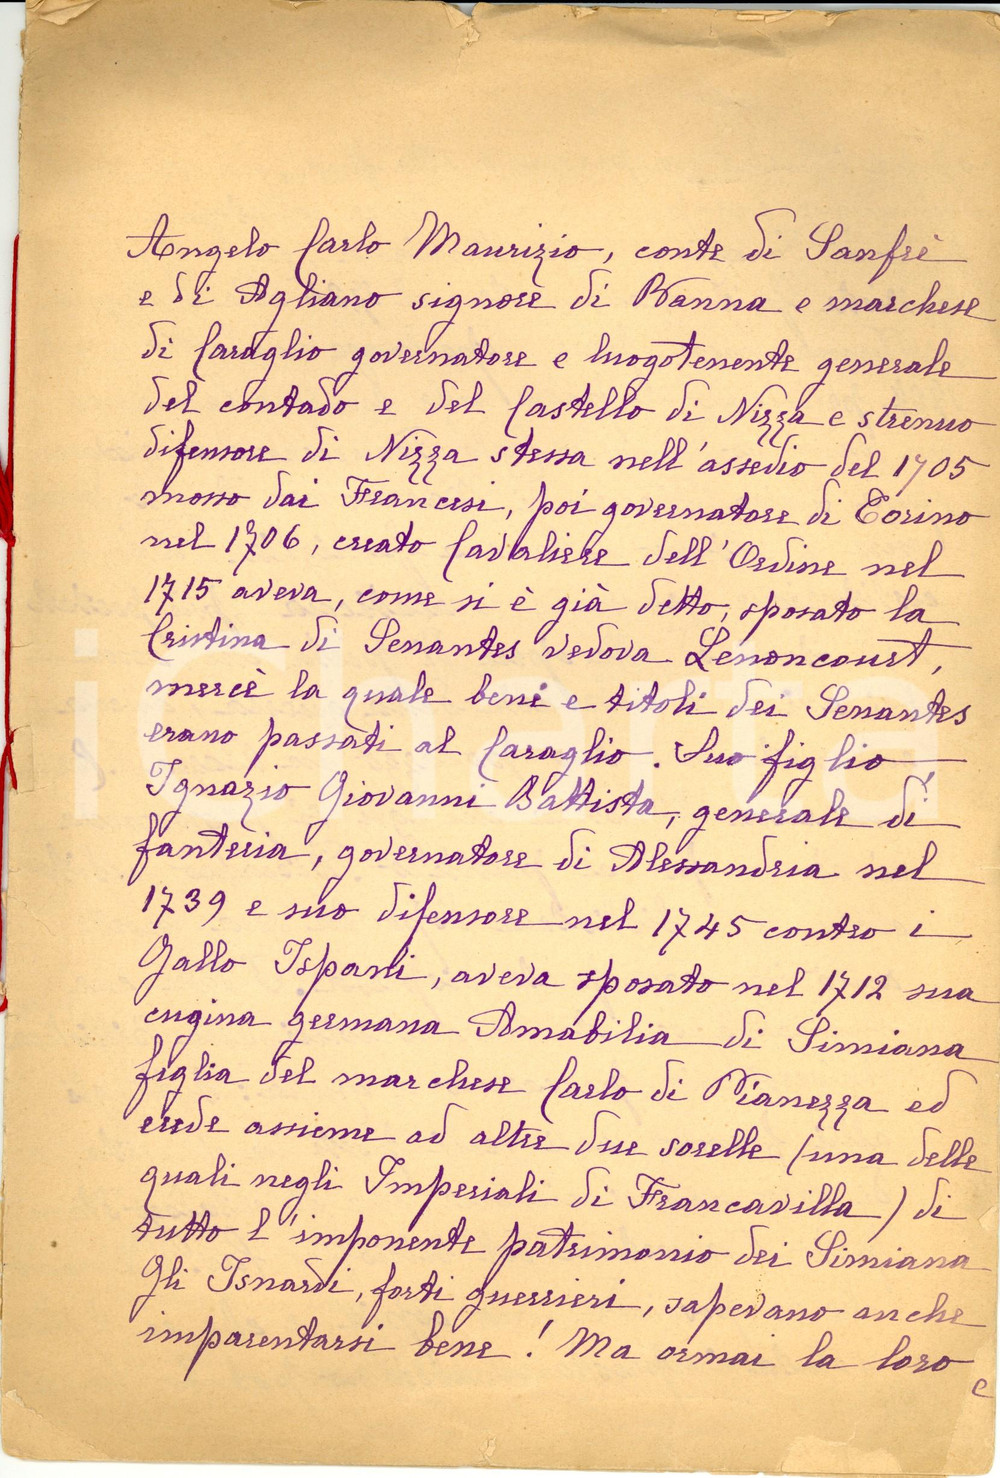 Angelo Carlo Maurizio, conte di Sanfrè
e di Agliano signore di Banna e marchese
di Caraglio governatore e luogotenente generale
del contado e del Castello di Nizza e strenuo
difensore di Nizza stessa nell'assedio del 1705
mosso dai Francesi, poi governatore di Torino
nel 1706, creato Cavaliere dell'Ordine nel
1715 aveva, come si è già detto, sposato la
Cristina di Senantes vedova Lenoncourt,
mercè la quale beni e titoli dei Senantes
erano passati al Caraglio. Suo figlio
Ignazio Giovanni Battista, generale di
fanteria, governatore di Alessandria nel
1739 e suo difensore nel 1745 contro i
Gallo Ispani, aveva sposato nel 1712 sua
cugina germana Amabilia di Simiana
figlia del marchese Carlo di Pianezza ed
erede assieme ad altre due sorelle (una delle
quali negli Imperiali di Francavilla) di
tutto l'imponente patrimonio dei Simiana
Gli Isnardi, forti guerrieri, sapevano anche
imparentarsi bene! Ma ormai la loro
e
iCharta